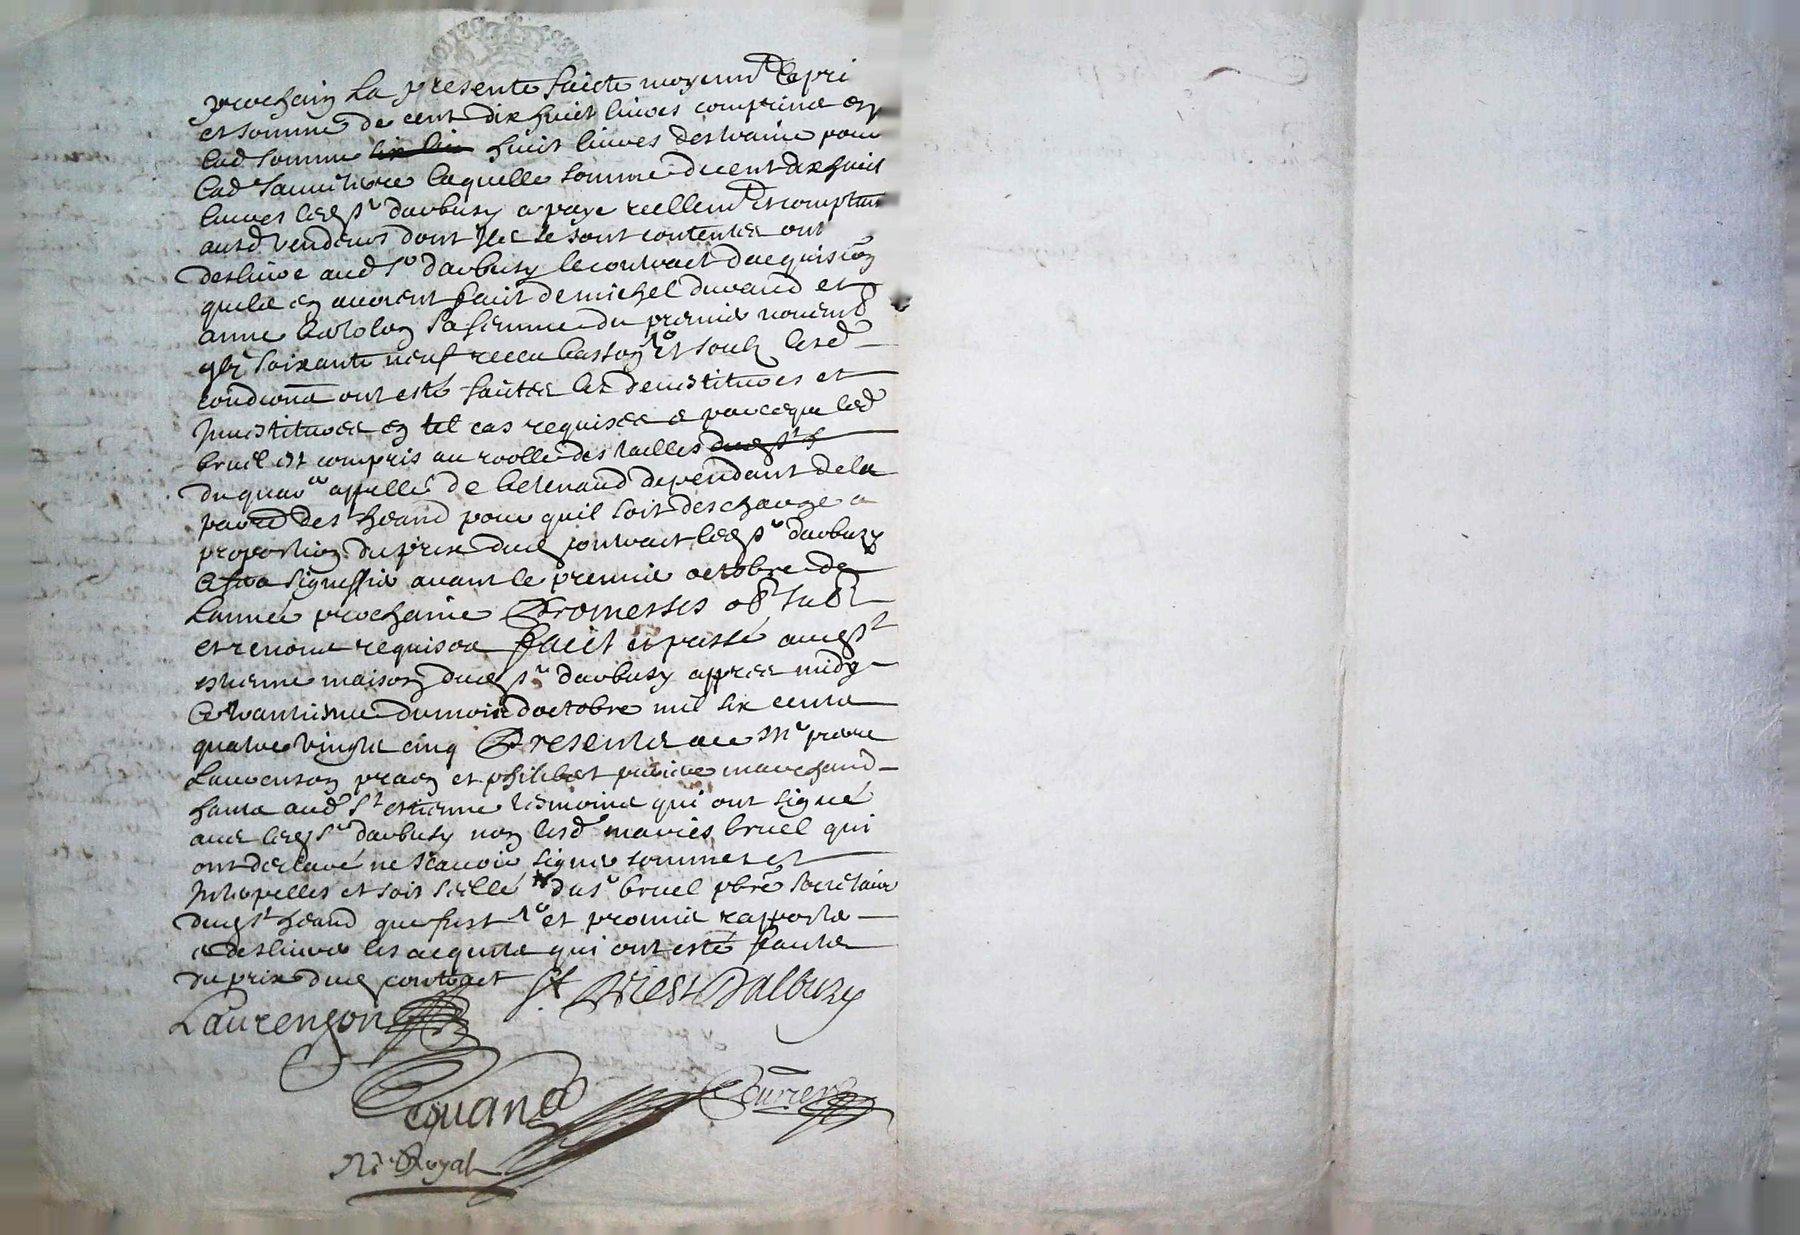 prochain La presente faicte moyenn^t le pri
et somme de cent dix huict livres comprins en
lad somme huict livres destraine pour
lad laquelle somme de cent dix huict
livres led s^r daubuzy a paye reellem^t et comptant
ausd vendeurs dont Ilz se sont contentes ont
deslivré aud s^r daubuzy le contract dacquis^on
quilz en avoient faict de michel durand et
anne sa femme du premier novemb
g^bz soixante neuf receu Et soubz lesd
condi^ons ont esté faictes les devestitures et
Investitures en tel cas requises e parceque led
bruel est compris au roolle des tailles
du quar^er appellé de dependant de la
parr^e de s^t heand pour quil soit descharge a
proportion du prix dud contract led s^r daubuzy
le fera signiffier avant le premier octobre de
Lannée prochaine Promesses ob^g sub^m
et renon requises faict et passé aud s^t
estienne maison dud s^r daubuzy appres midy
le trantiesme du mois doctobre mil six centz
quatre vingtz cinq Presentz a ce M^e pierre
Laurenson prat^n et philibert marchand
hantz aud s^t estienne tesmoins qui ont signé
avec led s^r daubuzy non lesd mariés bruel qui
ont declaré ne scavoir signer sommes et
Interpelles et soit scellé du s^r bruel pbre secretaire
dud s^t heand que fust et promis rapporter
e deslivrer les acquitz qui ont esté faictz
du prix dud contract St Priest Dalbuzy
Laurenson
N^re Royal